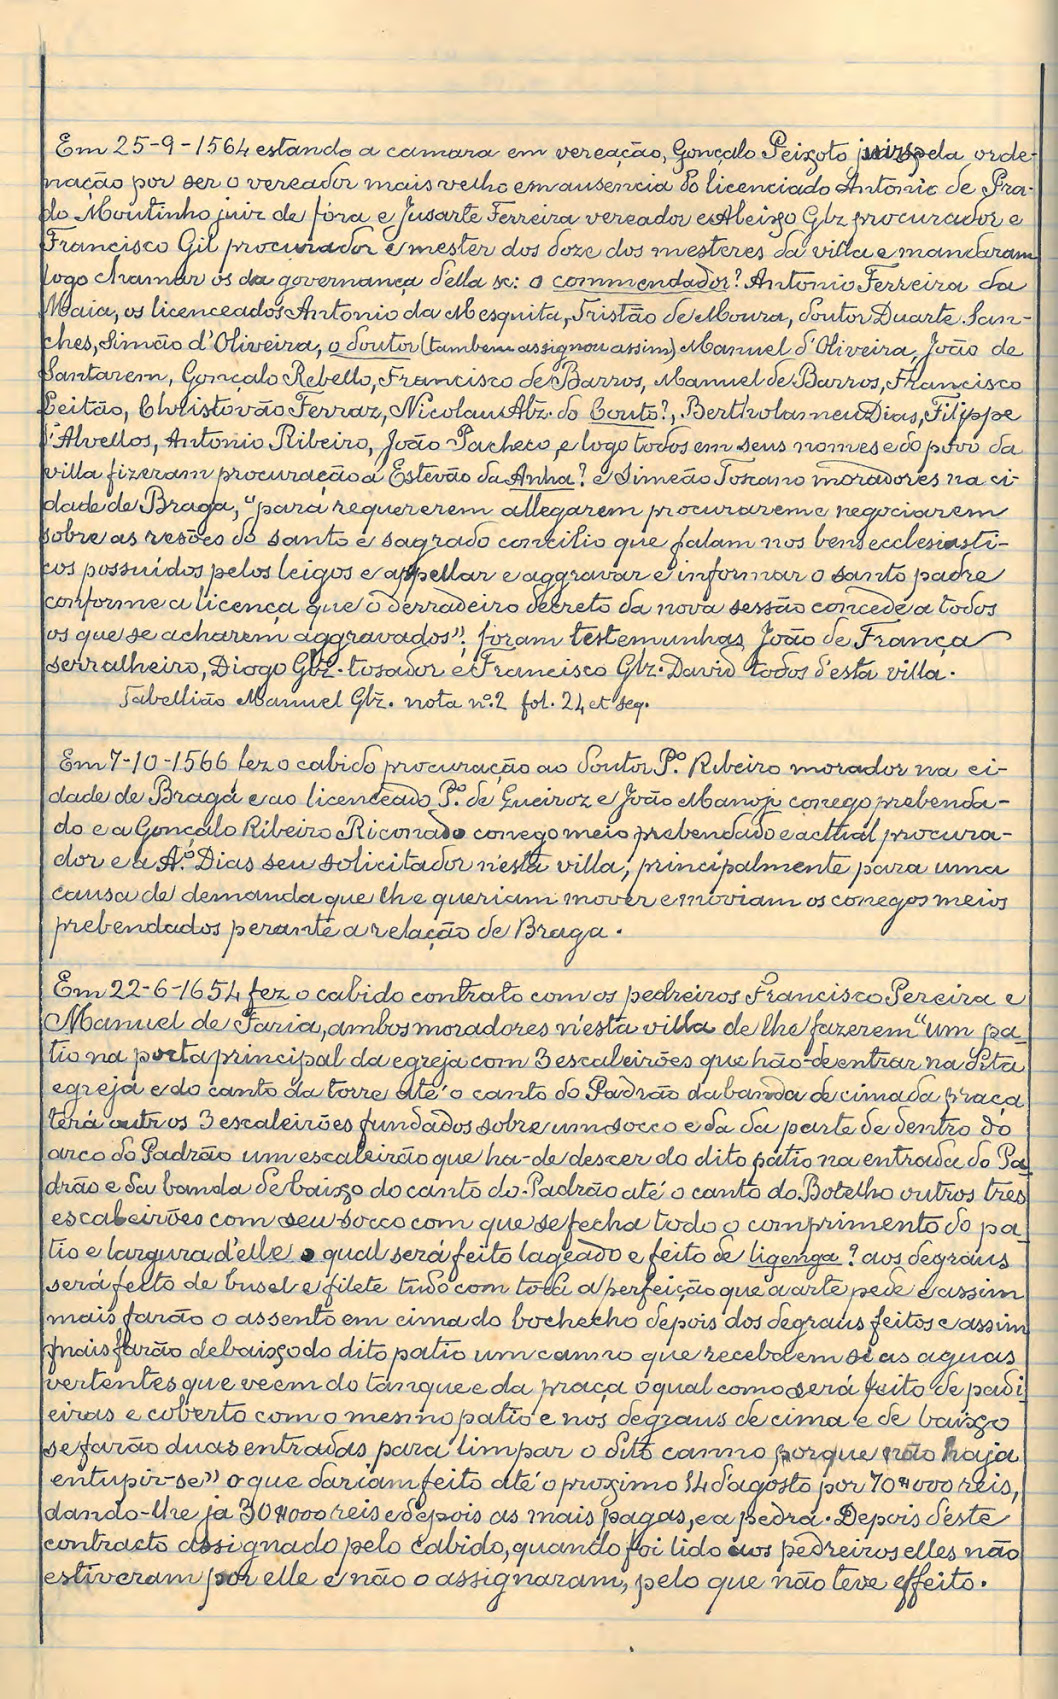 Em 25-9-1564 estando a camara em vereação, Gonçalo Peixoto juirs pela orde-
nação por ser o vereador mais velho em ausencia do licenciado Antonio de Pra-
do Moutinho juiz de fóra e Jusarte Ferreira vereador e Aleixo Glz procurador e
Francisco Gil procurador e mester dos doze dos mesteres da villa e mandaram
logo chamar os da governança d'ella sc: o commendador? Antonio Ferreira da
Maia, os licenceados Antonio da Mesquita, Tristão de Moura, doutor Duarte San-
ches, Simão d'Oliveira, o doutor (tambem assignou assim) Manuel d'Oliveira, João de
Santarem, Gonçalo Rebello, Francisco de Barros, Manuel de Barros, Francisco
Leitão, Christovão Ferraz, Nicolau Abz. do Couto?, Bertholameu Dias, Filippe
d'Alvellos, Antonio Ribeiro, João Pacheco, e logo todos em seus nomes e do povo da
villa fizeram procuração a Estevão da Anha? e Simeão Toscano moradores na ci-
dade de Braga, "para requererem allegarem procurarem e negociarem
sobre as resões do santo e sagrado concilio que falam nos bens ecclesiasti-
cos possuídos pelos leigos e appellar e aggravar e informar o santo padre
conforme a licença que o derradeiro decreto da nova sessão concede a todos
os que se acharem aggravados"; foram testemunhas João de França
serralheiro, Diogo Glz. tosador e Francisco Glz. David todos d'esta villa.
Tabellião Manuel Glz. nota nº. 2 fol. 24 et seq.
Em 7-10-1566 fez o cabido procuração ao doutor P.º Ribeiro morador na ci-
dade de Braga e ao licenceado P.º de Gueiroz e João Manoji conego prebenda-
do e a Gonçalo Ribeiro Riconado conego meio prebendado e actual procura-
dor e a A.º Dias seu solicitador n'esta villa, principalmente para uma
causa de demanda que lhe queriam mover e moviam os conegos meios
prebendados perante a relação de Braga.
Em 22-6-1654 fez o cabido contrato com os pedreiros Francisco Pereira e
Manuel de Faria, ambos moradores n'esta villa de lhe fazerem "um pa-
tio na porta principal da egreja com 3 escaleirões que hão-de entrar na dita
egreja e do canto da torre até o canto do Padrão da banda de cima da praça
terá outros 3 escaleirões fundados sobre um socco e da da parte de dentro do
arco do Padrão um escaleirão que ha-de descer do dito patio na entrada do Pa-
drão e da banda de baixo do canto do Padrão até o canto do Botelho outros tres
escaleirões com seu socco com que se fecha todo o comprimento do pa-
tio e largura d'elle o qual será feito lageado e feito de ligenga? aos degraus
será feito de busel e filete tudo com toda a perfeição que a arte pede e assim
mais farão o assento em cima do bochecho depois dos degraus feitos e assim
mais farão debaixo do dito patio um canno que receba em si as aguas
vertentes que veem do tanque e da praça o qual como será feito de padi-
eiras e coberto com o mesmo patio e nos degraus de cima e de baixo
se farão duas entradas para limpar o dito canno porque não haja
entupir-se" o que dariam feito até o proximo 14 d'agosto por 70$000 reis,
dando-lhe já 30$000 reis e depois as mais pagas, e a pedra. Depois d'este
contracto assignado pelo cabido, quando foi lido aos pedreiros elles não
estiveram por elle e não o assignaram, pelo que não teve effeito.